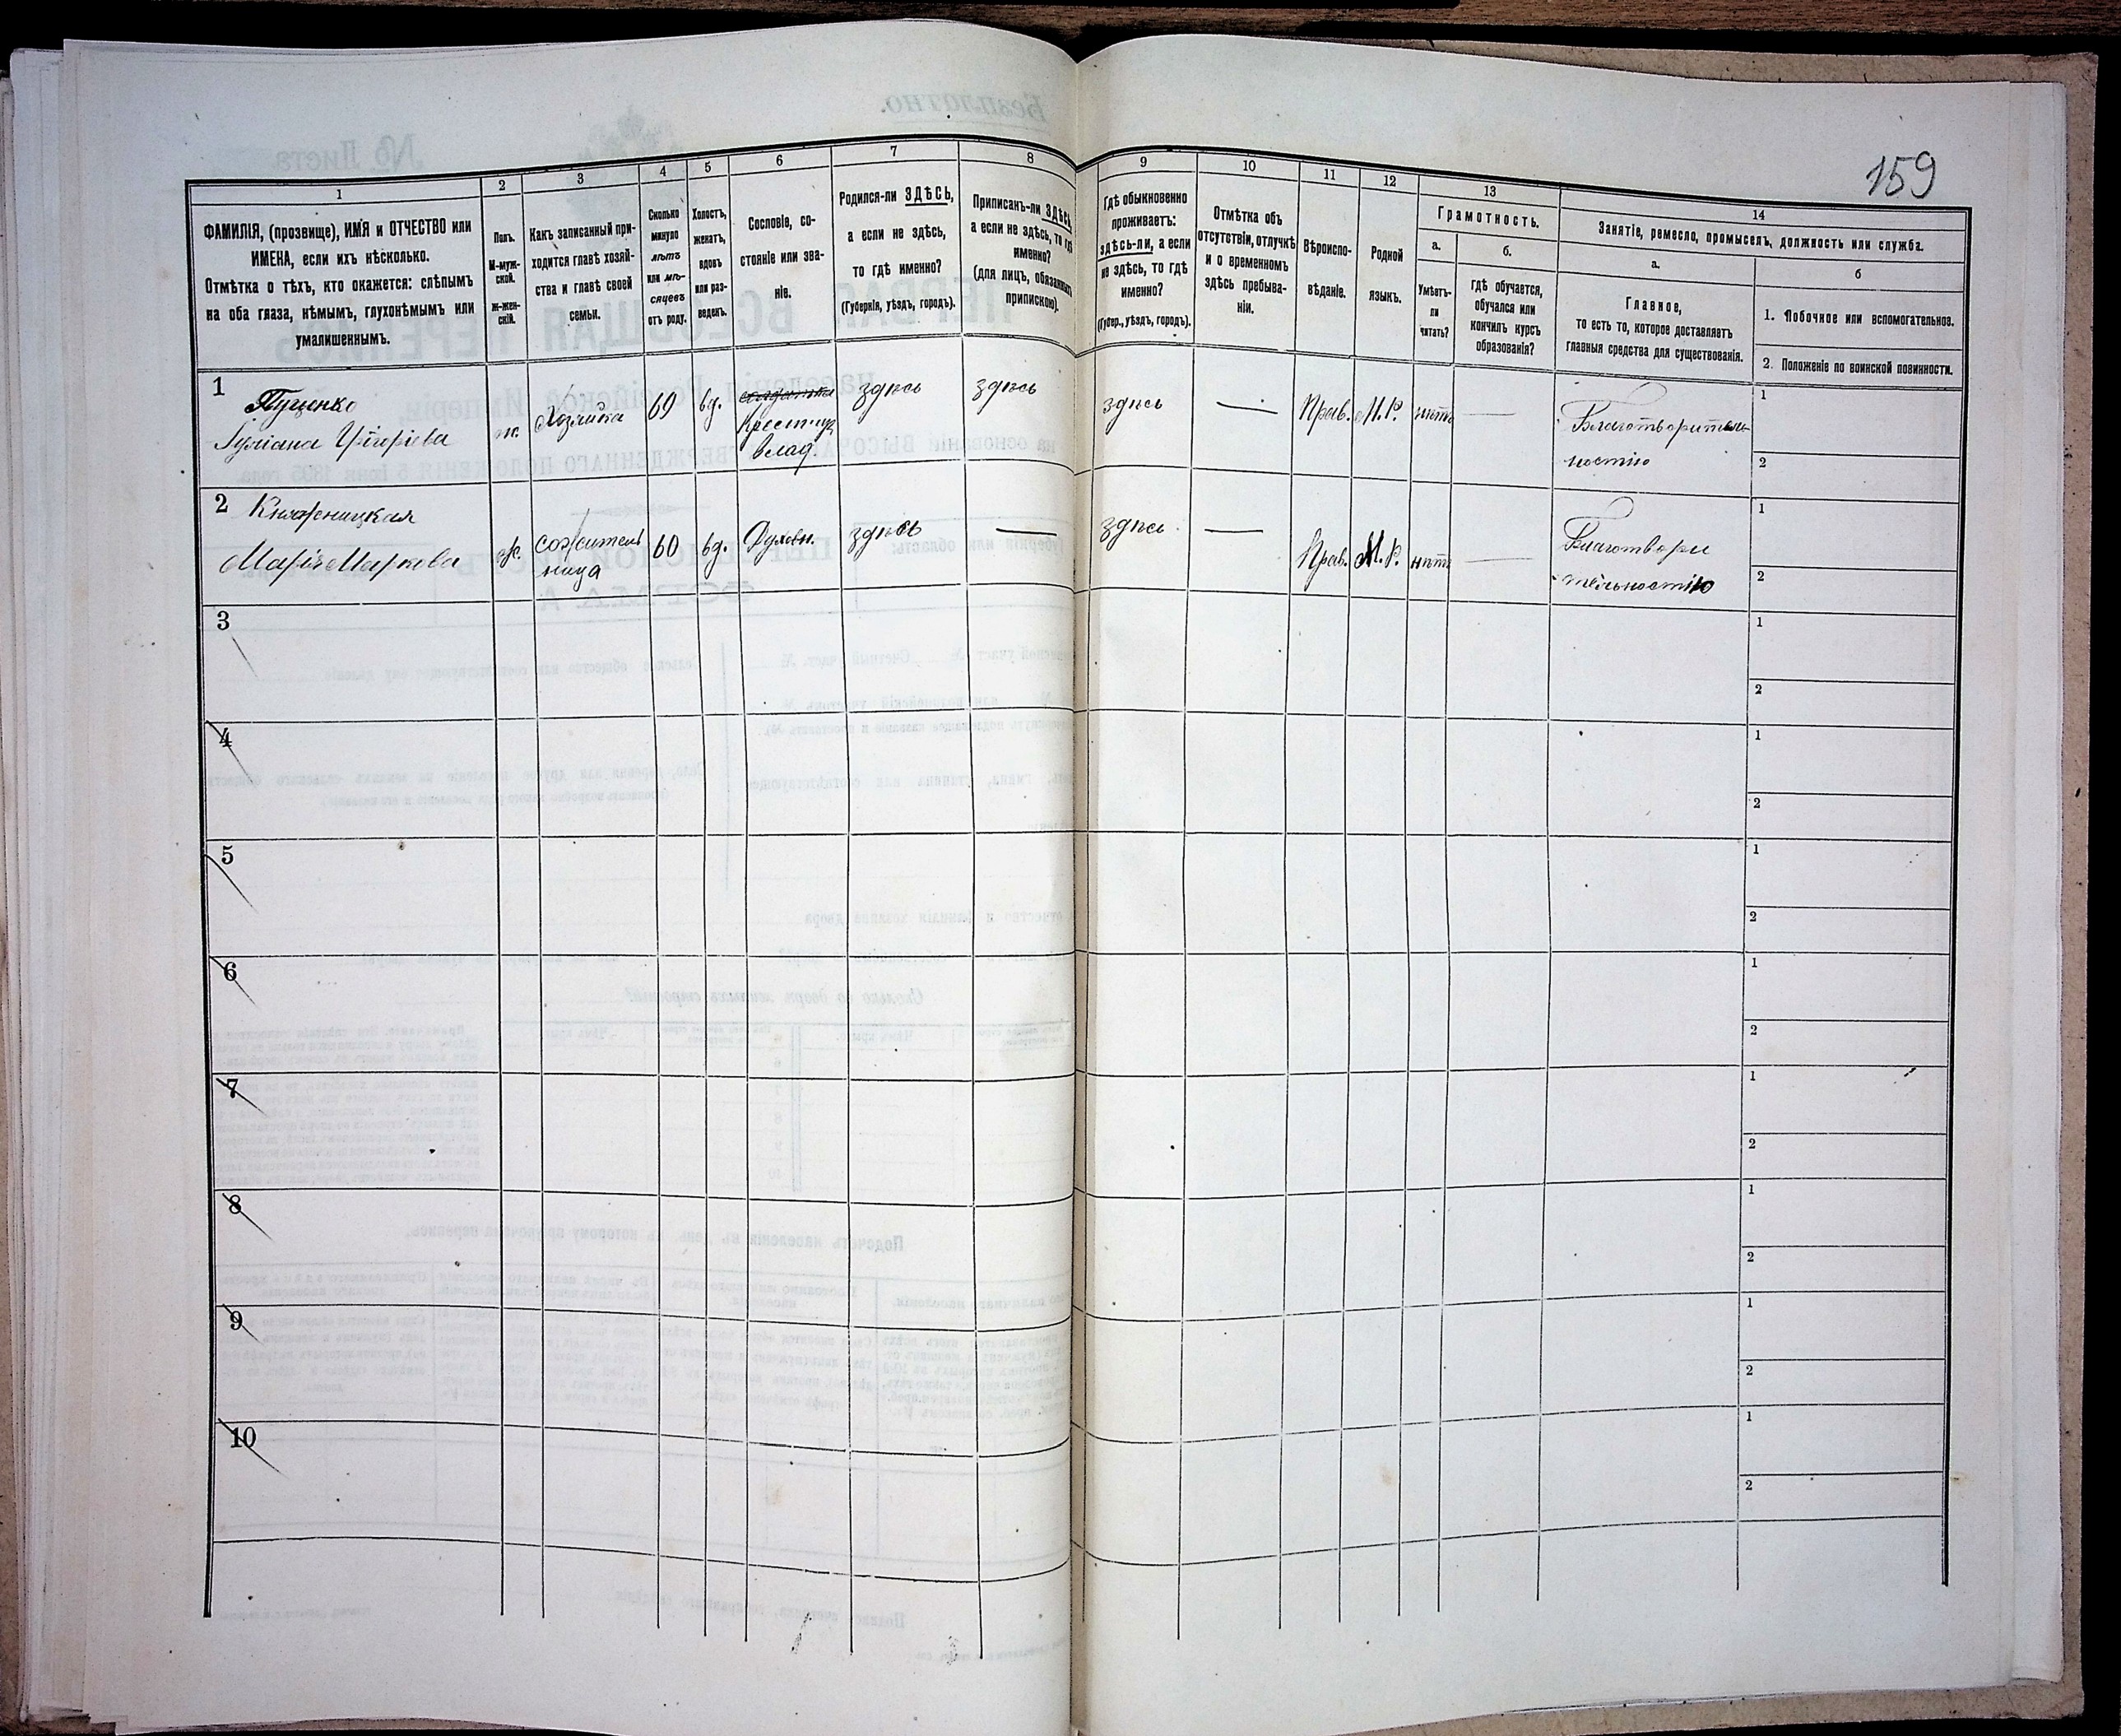 159
1
2
3
4
5
6
7
8
9
10
11
12
13
14
ФАМИЛІЯ, (прозвище), ИМЯ и ОТЧЕСТВО или
ИМЕНА, если ихъ нѣсколько.
Отмѣтка о тѣхъ, кто окажется: слѣпымъ
на оба глаза, нѣмымъ, глухонѣмымъ или
умалишеннымъ.
Полъ.
М-муж-
ской.
Ж-жен-
скій.
Какъ записанный при-
ходится главѣ хозяй-
ства и главѣ своей
семьи.
Сколько
минуло
лѣтъ
или мѣ-
сяцевъ
отъ роду.
Холостъ,
женатъ,
вдовъ
или раз-
веденъ.
Сословіе, со-
стояніе или зва-
ніе.
Родился-ли ЗДѢСЬ,
а если не здѣсь,
то гдѣ именно?
(Губернія, уѣздъ, городъ).
Приписанъ-ли ЗДѢСЬ,
а если не здѣсь, то гдѣ
именно?
(для лицъ, обязанныхъ
припискою).
Гдѣ обыкновенно
проживаетъ:
здѣсь-ли, а если
не здѣсь, то гдѣ
именно?
(Губер., уѣздъ, городъ).
Отмѣтка объ
отсутствіи, отлучкѣ
и о временномъ
здѣсь пребыва-
ніи.
Вѣроиспо-
вѣданіе.
Родной
языкъ.
Грамотность.
а.
Умѣетъ-
ли
читать?
б.
гдѣ обучается,
обучался или
кончилъ курсъ
образованія?
Занятіе, ремесло, промыселъ, должность или служба.
а.
Главное,
то есть то, которое доставляетъ
главныя средства для существованія.
б
1. Побочное или вспомогательное.
2. Положеніе по воинской повинности.
1
Пуценко
Григоріева
ж.
Хозяйка
69
вд.
Крестьян
влад.
здѣсь
здѣсь
здѣсь
—
Прав.
М.Р.
нѣтъ
—
Благотворитель
ностію
1
2
2
Княжницкая
Марія Маркова
ж.
сожитель
ница
60
вд.
Духовн.
здѣсь
—
здѣсь
—
Прав.
М.Р.
нѣтъ
—
Благотвори
тельностію
1
2
3
1
2
4
1
2
5
1
2
6
1
2
7
1
2
8
1
2
9
1
2
10
1
2